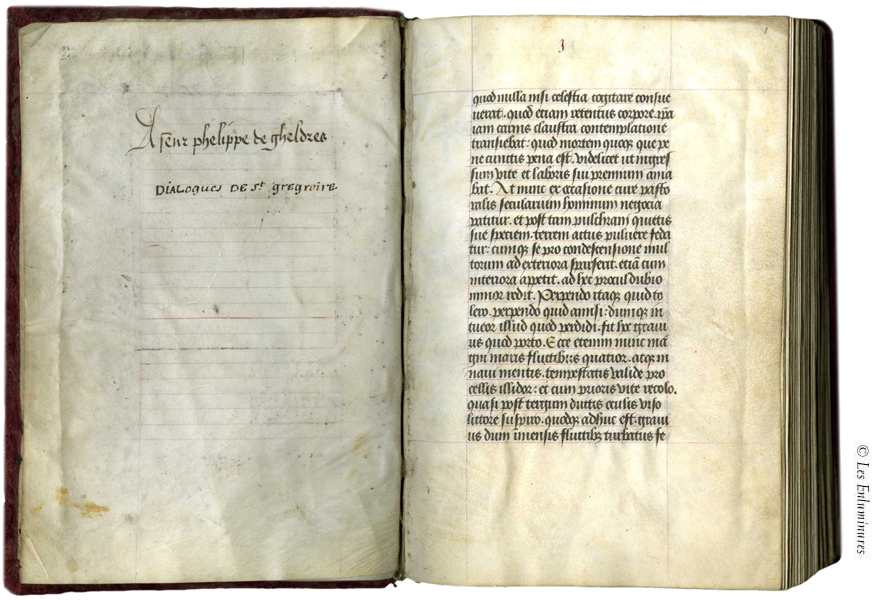 A seur phelippe de gheldres
DIALOGUES DE St gregroire.
3
1
quod nulla nisi celestia cogitare consue
uerat. quod etiam retentus corpore. ipsa
iam carnis claustra contemplatione
transiebat: quod mortem quoqꝫ que pe
ne cunctis pena est. videlicet ut ingres
sum vite et laboris sui premium ama
bat. At nunc ex occasione cure pasto
ralis secularium hominum negocia
patitur. et post tam pulchram quietis
sue speciem. terreni actus puluere feda
tur: cumqꝫ se pro condescensione mul
torum ad exteriora sparserit. etiā cum
interiora appetit. ad hec procul dubio
minor redit. Perpendo itaqꝫ quid to
lero. perpendo quid amisi: dumqꝫ in
tueor illud quod perdidi. fit hoc graui
us quod porto. Ecce etenim nunc ma
gni maris fluctibus quatior. atqꝫ in
naui mentis. tempestatis valide pro
cellis illidor: et cum prioris vite recolo.
quasi post tergum ductis oculis viso
littore suspiro. quodqꝫ adhuc est graui
us dum īmensis fluctibꝫ turbatus fe
© Les Enluminures